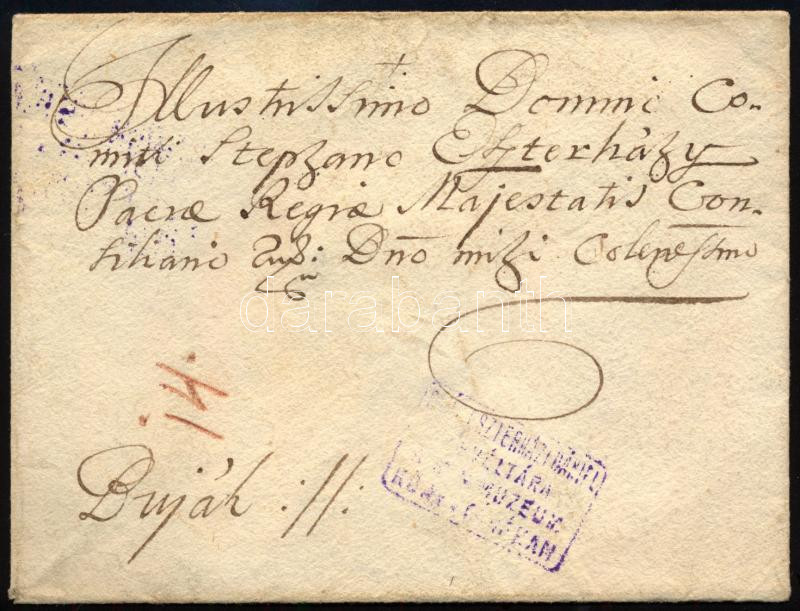 Illustrissimo Domino Co-
miti Stephano Eszterházy
Sacræ Regiæ Majestatis Con-
siliario Dño mihi Colendissimo
darabanth
14.
Buják :/:
ESZTERHÁZY DÁNIEL
LEVÉLTÁRA
MUZEUM